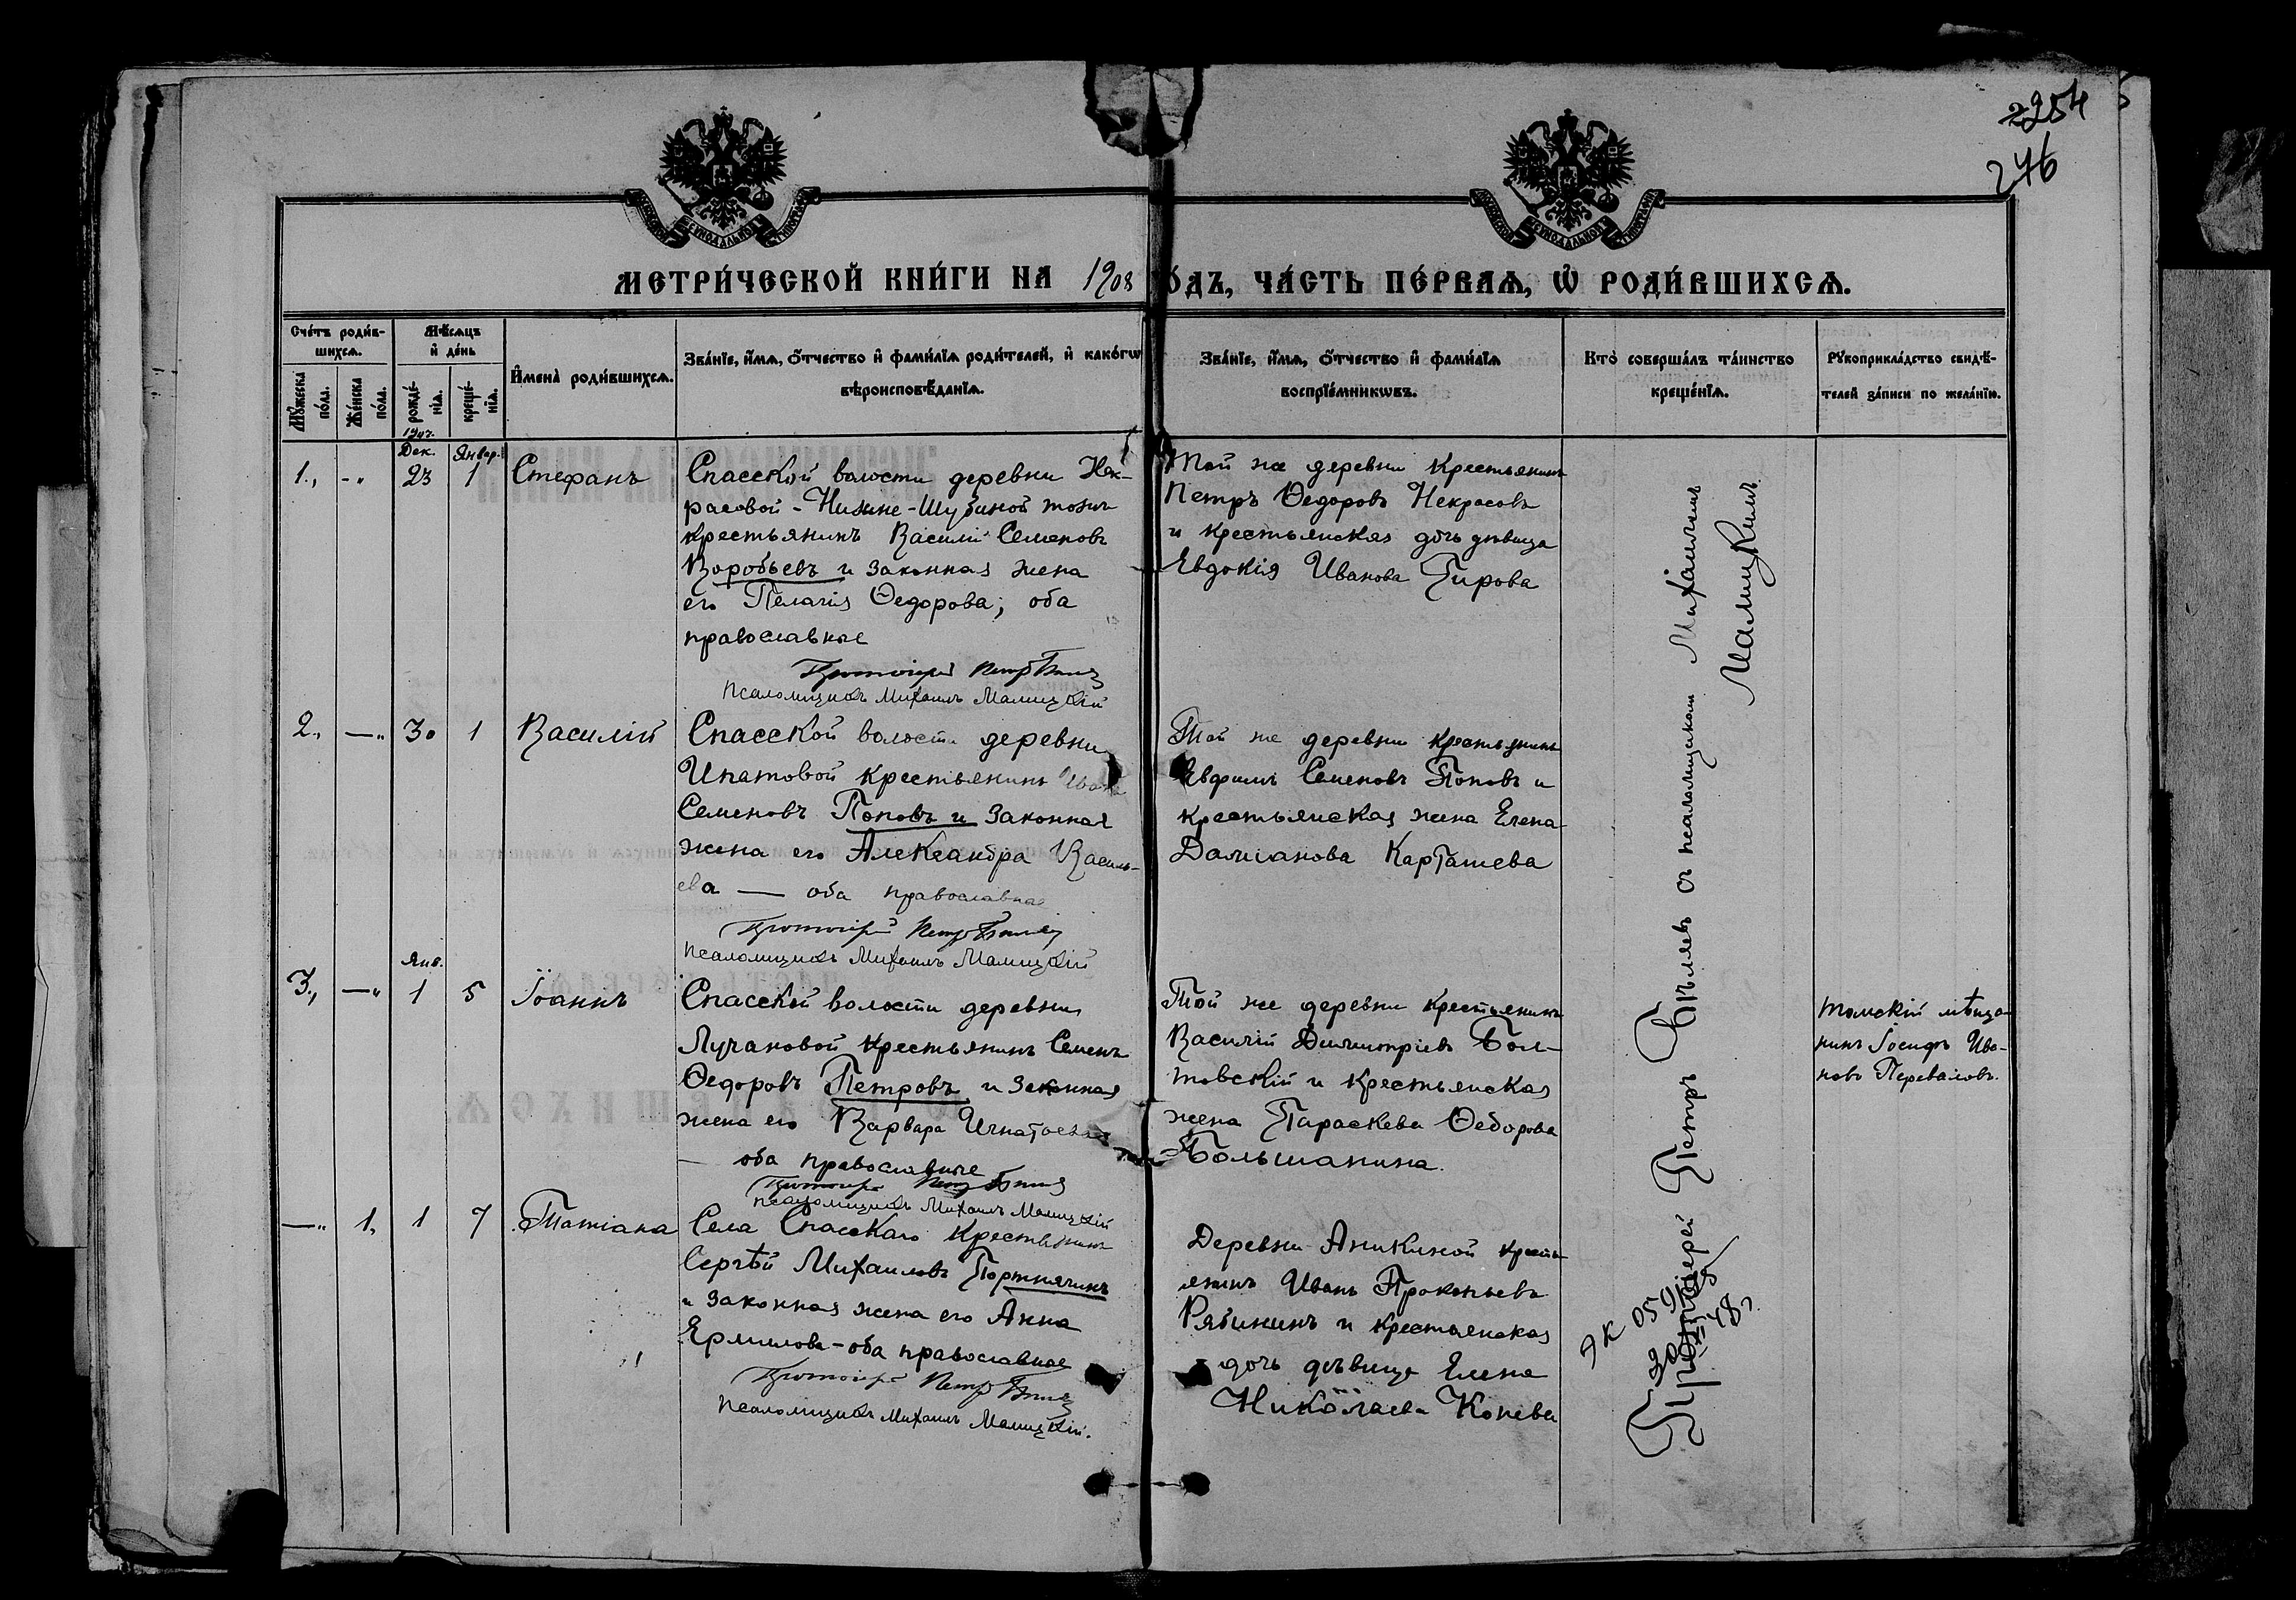 2254
276
МЕТРИ́ЧЕСКОЙ КНИ́ГИ НА 1908 ГО́ДЪ, ЧА́СТЬ ПЕ́РВАѦ, Ѡ҆ РОДИ́ВШИХСѦ.
Сче́тъ роди́в-
шихсѧ.
Мѣ́сѧцъ
и҆ де́нь
И҆мена̀ роди́вшихсѧ.
Зва́нїе, и҆́мѧ, ѻ҆́тчество и҆ фами́лїѧ роди́телей, и҆ како́гѡ
вѣроисповѣ́данїѧ.
Зва́нїе, и҆́мѧ, ѻ҆́тчество и҆ фами́лїѧ
воспрїе́мникѡвъ.
Кто̀ соверша́лъ та́инство
креще́нїѧ.
Рꙋкоприкла́дство свидѣ́-
телей за́писи по жела́нїю.
Мꙋ́жеска
по́ла.
Же́нска
по́ла.
рожде́-
нїѧ.
креще́-
нїѧ.
1907.
Дек. Январ.
1., -„ 23 1 Стефанъ
Спасской волости деревни Нек-
расовой-Нижне-Шубиной тожъ
крестьянинъ Василій Семеновъ
Воробьевъ и законная жена
его Пелагія Ѳедорова; оба
православные
Протоіерей Петръ
Псаломщикъ Михаилъ Малицкій
Той же деревни крестьянинъ
Петръ Ѳедоровъ Некрасовъ
и крестьянская дочь дѣвица
Евдокія Иванова Гирова
2., —„ 30 1 Василій
Спасской волости деревни
Ипатовой крестьянинъ Иванъ
Семеновъ Поповъ и законная
жена его Александра Василь-
ева — оба православные
Протоіерей Петръ
Псаломщикъ Михаилъ Малицкій
Той же деревни крестьянинъ
Евфимъ Семеновъ Поповъ и
крестьянская жена Елена
Даміанова Карташева
Янв.
3., —„ 1 5 Іоаннъ
Спасской волости деревни
Лучановой крестьянинъ Семенъ
Ѳедоровъ Петровъ и законная
жена его Варвара Игнатьева
— оба православные
Протоіерей Петръ
Псаломщикъ Михаилъ Малицкій
Той же деревни крестьянинъ
Василій Димитріевъ Бол-
товскій и крестьянская
жена Параскева Ѳедорова
Большанина.
Томскій мѣща-
нинъ Іосифъ Ива-
новъ Переваловъ.
—„ 1. 1 7 Татіана
Села Спасскаго крестьянинъ
Сергѣй Михаиловъ Портнягинъ
и законная жена его Анна
Ермилова-оба православные
Протоіерей Петръ
Псаломщикъ Михаилъ Малицкій.
Деревни Аникиной кресть-
янинъ Иванъ Прокопьевъ
Рябининъ и крестьянская
дочь дѣвица Елена
Николаева Конева
Протоіерей Петръ Бѣляевъ съ псаломщикомъ Михаиломъ
Малицкимъ